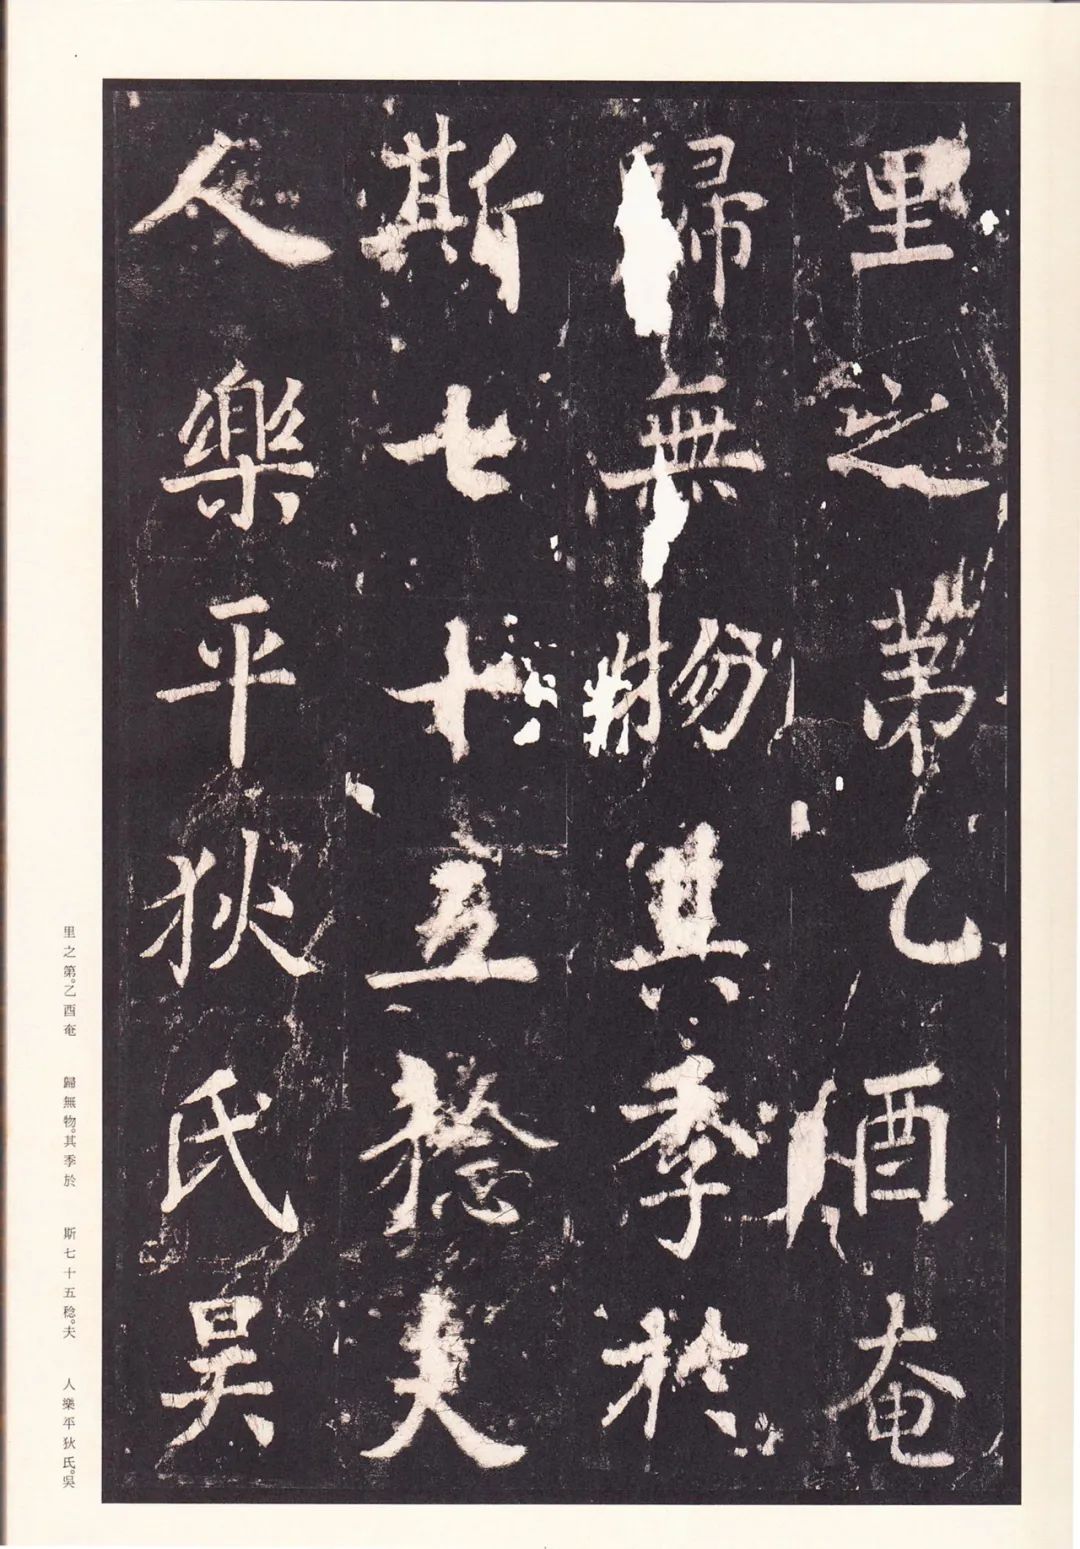 里之第乙酉奄
歸無物其季於
斯七十五稔夫
人樂平狄氏吴
里之第。乙酉奄 歸無物。其季於 斯七十五稔。夫 人樂平狄氏。吳